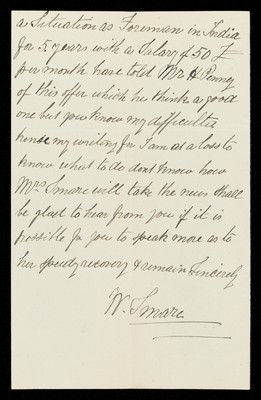 a Situation as Foreman in India
for 5 years with a Salary of 50 £
per month have told Mr H Penney
of this offer which he thinks a good
one but you know my difficulty
hence my writing for I am at a loss to
know what to do dont know how
Mrs Smare will take the news shall
be glad to hear from you if it is
possible for you to speak more as to
her speedy recovery & remain Sincerely
W. Smare